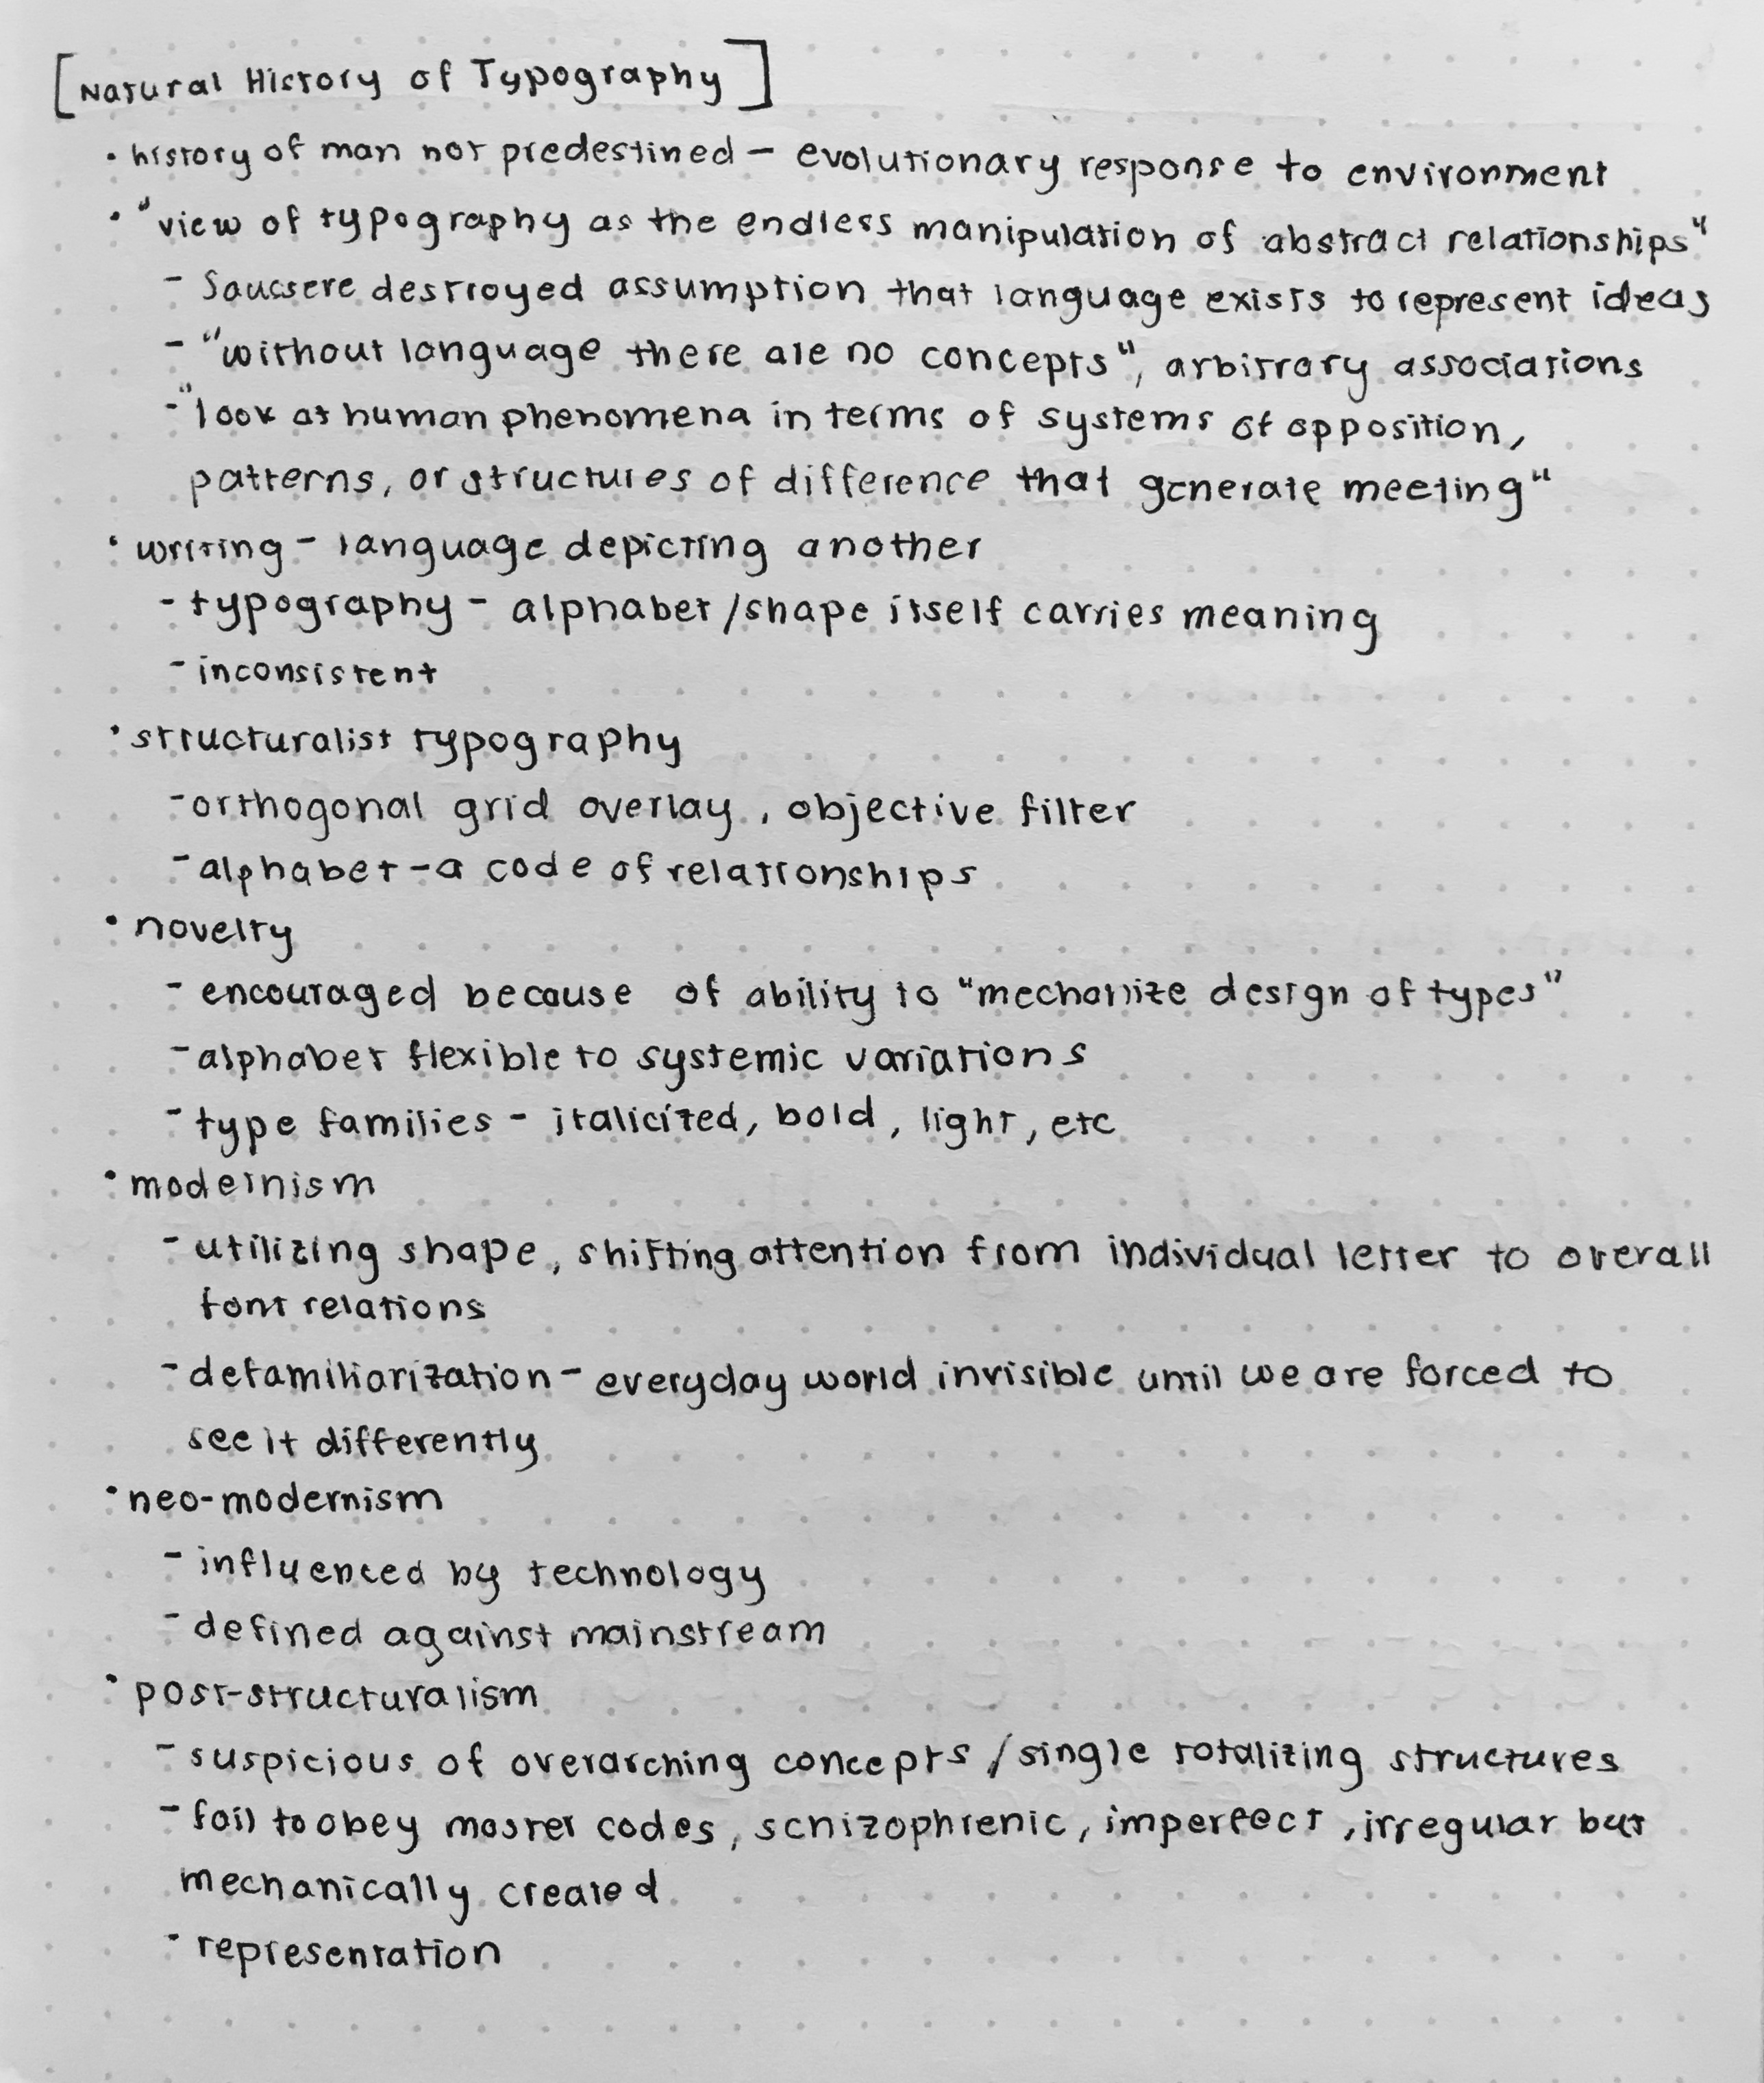 [Natural History of Typography]
• history of man not predestined — evolutionary response to environment
• "view of typography as the endless manipulation of abstract relationships"
- Saussere destroyed assumption that language exists to represent ideas
- "without language there are no concepts", arbitrary associations
- "look at human phenomena in terms of systems of opposition,
patterns, or structures of difference that generate meeting"
• writing - language depicting another
- typography - alphabet/shape itself carries meaning
- inconsistent
• structuralist typography
- orthogonal grid overlay, objective filter
- alphabet - a code of relationships
• novelty
- encouraged because of ability to "mechanize design of types"
- alphabet flexible to systemic variations
- type families - italicized, bold, light, etc
• modernism
- utilizing shape, shifting attention from individual letter to overall
font relations
- defamiliarization - everyday world invisible until we are forced to
see it differently
• neo-modernism
- influenced by technology
- defined against mainstream
• post-structuralism
- suspicious of overarching concepts / single totalizing structures
- fail to obey master codes, schizophrenic, imperfect, irregular but
mechanically created
- representation